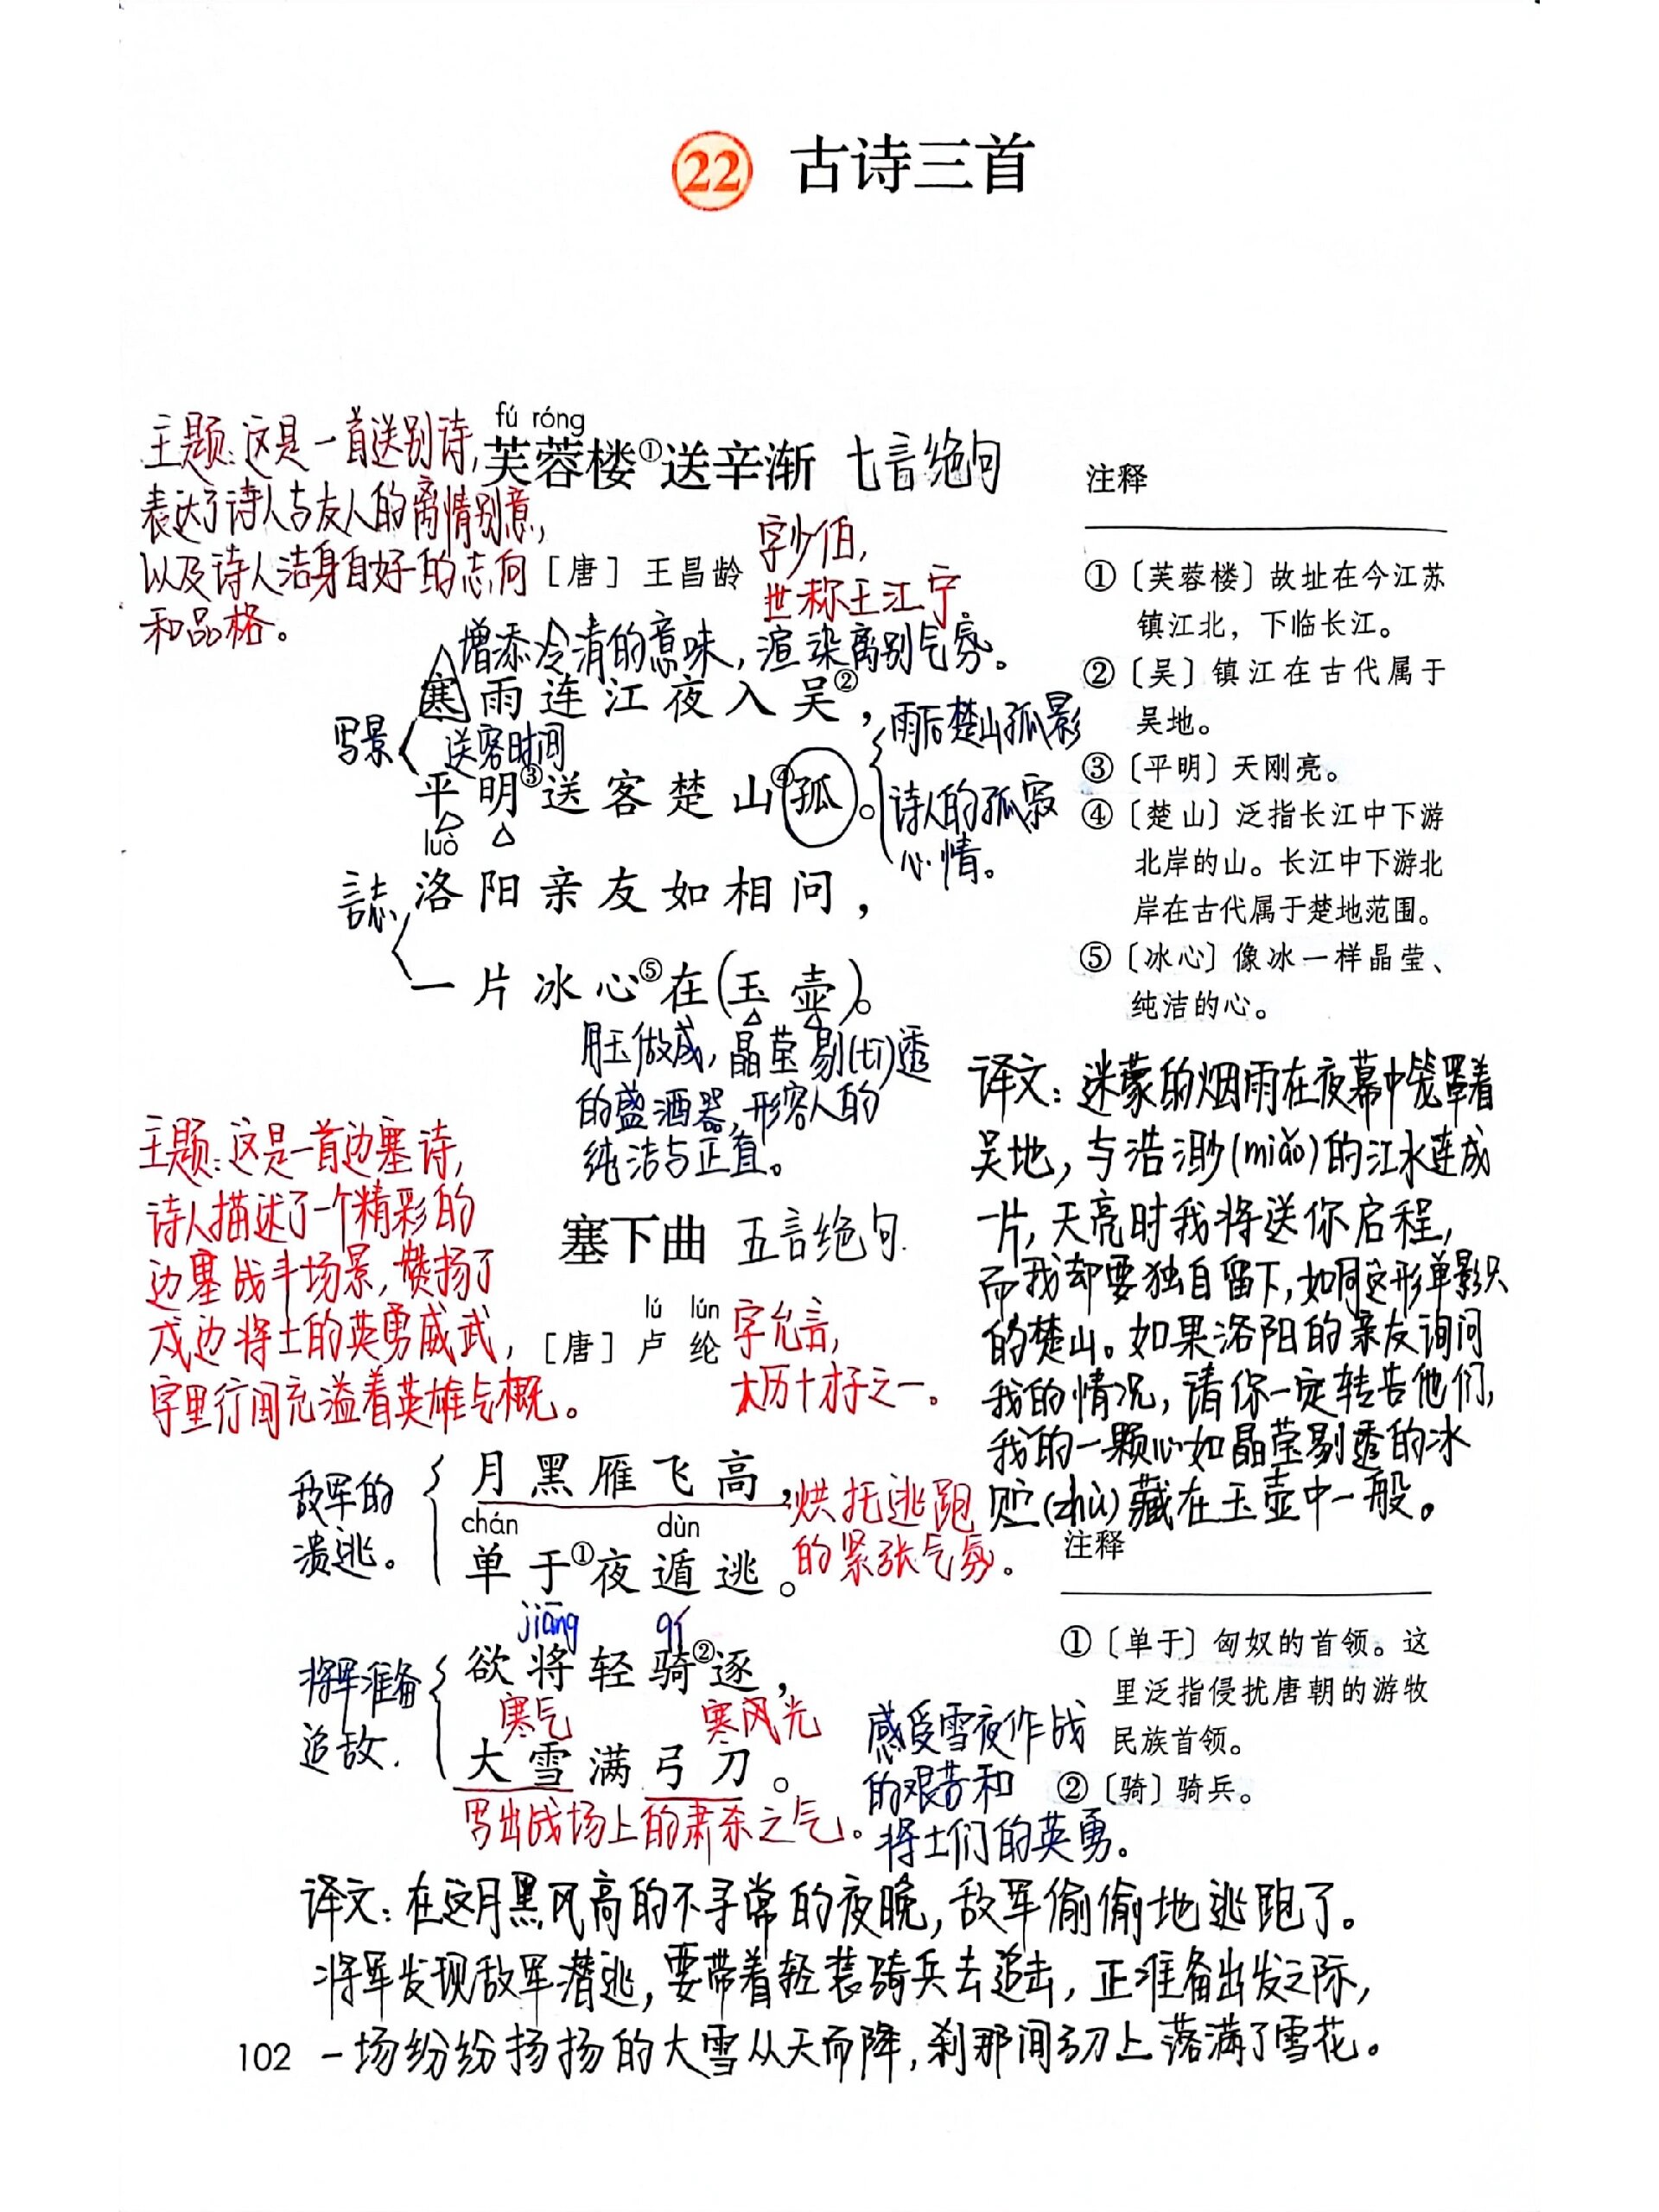 22 古诗三首
主题:这是一首送别诗,
表达了诗人与友人的离情别意,
以及诗人洁身自好的志向
和品格。
fú róng
芙蓉楼①送辛渐 七言绝句
[唐] 王昌龄
字少伯,
世称王江宁。
增添冷清的意味,渲染离别气氛。
寒雨连江夜入吴②,
写景
送客时间
平明③送客楚山④孤。
雨后楚山孤影
诗人的孤寂
心情。
luò
洛阳亲友如相问,
言志
一片冰心⑤在(玉壶)。
用玉做成,晶莹剔(tī)透
的盛酒器,形容人的
纯洁与正直。
注释
①〔芙蓉楼〕故址在今江苏
镇江北,下临长江。
②〔吴〕镇江在古代属于
吴地。
③〔平明〕天刚亮。
④〔楚山〕泛指长江中下游
北岸的山。长江中下游北
岸在古代属于楚地范围。
⑤〔冰心〕像冰一样晶莹、
纯洁的心。
译文:迷蒙的烟雨在夜幕中笼罩着
吴地,与浩渺(miǎo)的江水连成
一片,天亮时我将送你启程,
而我却要独自留下,如同这形单影只
的楚山。如果洛阳的亲友询问
我的情况,请你一定转告他们,
我的一颗心如晶莹剔透的冰
贮(zhù)藏在玉壶中一般。
主题:这是一首边塞诗,
诗人描述了一个精彩的
边塞战斗场景,赞扬了
戍边将士的英勇威武,
字里行间充溢着英雄气概。
塞下曲 五言绝句
lú lún
[唐] 卢纶
字允言,
大历十才子之一。
敌军的
溃逃。
月黑雁飞高,
烘托逃跑
的紧张气氛。
chán dùn
单于①夜遁逃。
jiāng qí
将军准备
追敌.
欲将轻骑②逐,
寒气 寒风光
大雪满弓刀。
写出战场上的肃杀之气。
感受雪夜作战
的艰苦和
将士们的英勇。
注释
①〔单于〕匈奴的首领。这
里泛指侵扰唐朝的游牧
民族首领。
②〔骑〕骑兵。
译文:在这月黑风高的不寻常的夜晚,敌军偷偷地逃跑了。
将军发现敌军潜逃,要带着轻装骑兵去追击,正准备出发之际,
一场纷纷扬扬的大雪从天而降,刹那间弓刀上落满了雪花。
102